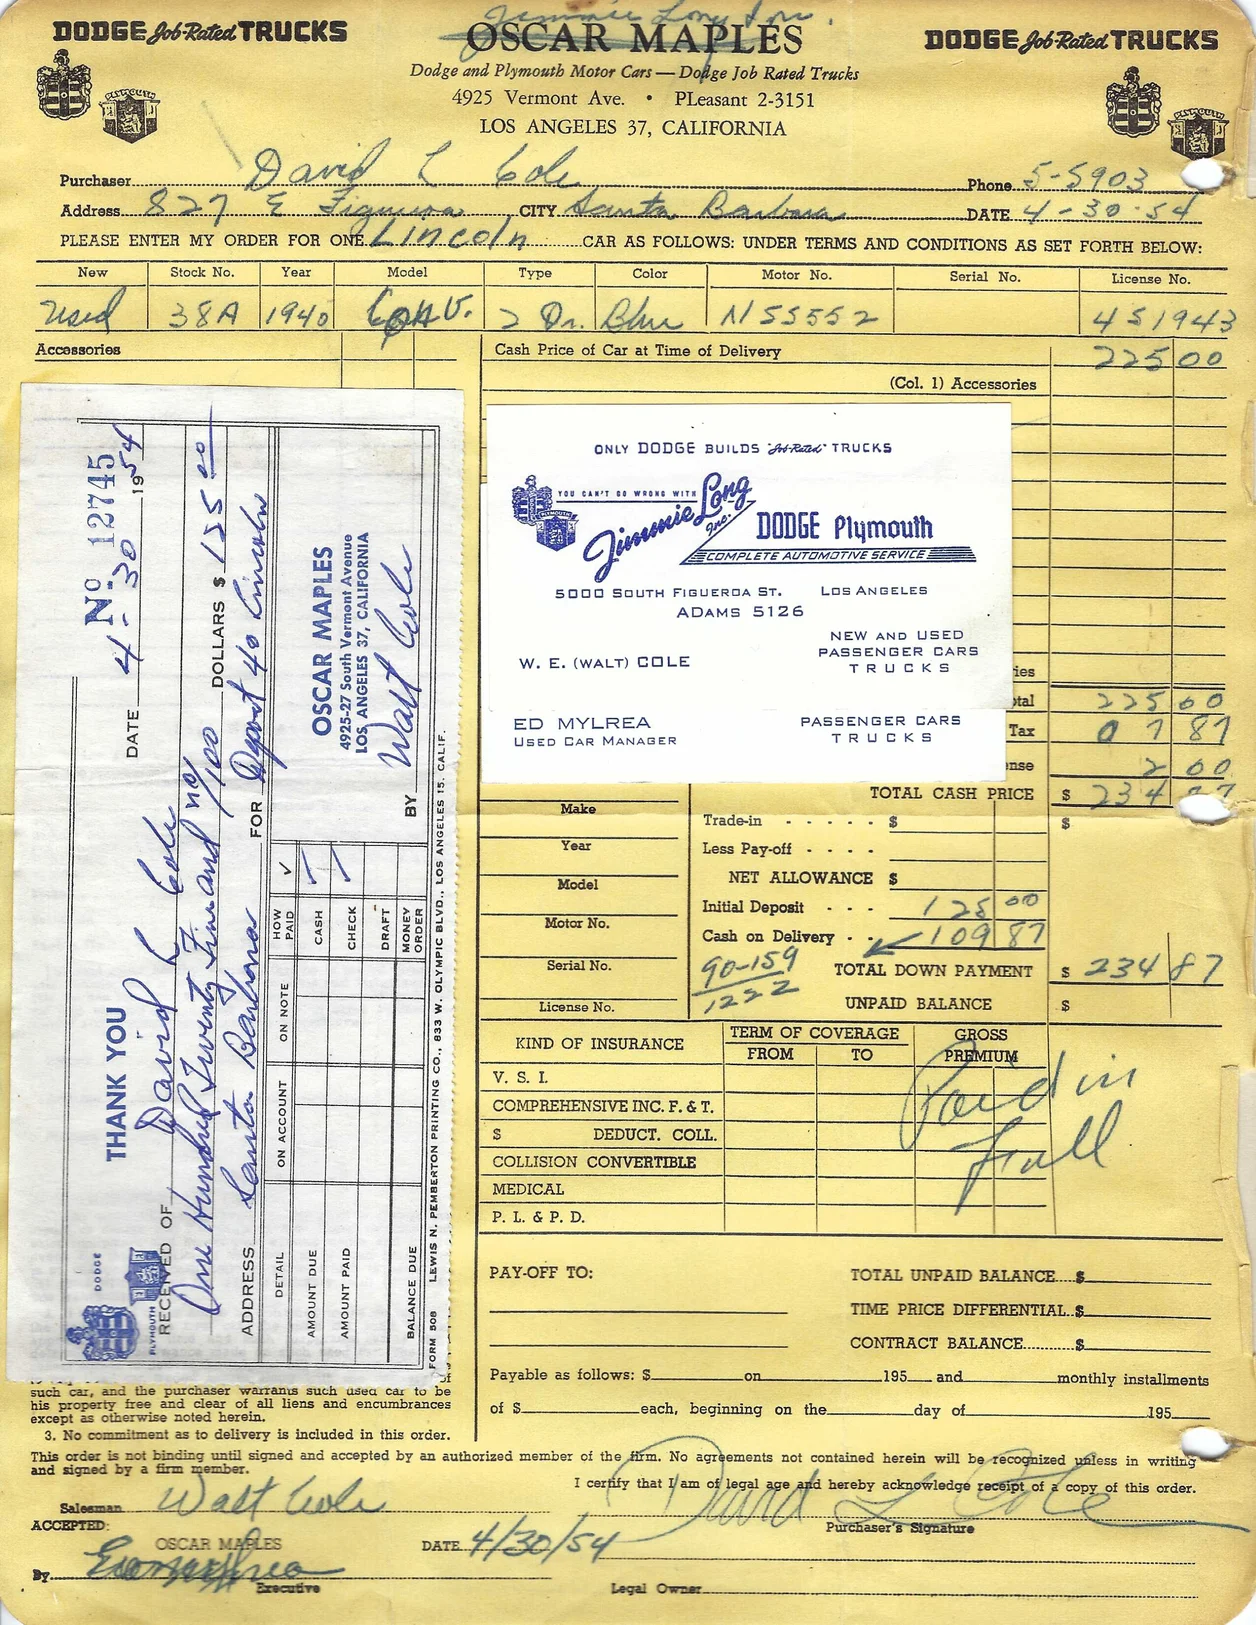 Jimmie Long Inc.
DODGE Job-Rated TRUCKS
OSCAR MAPLES
DODGE Job-Rated TRUCKS
Dodge and Plymouth Motor Cars — Dodge Job Rated Trucks
4925 Vermont Ave. • PLeasant 2-3151
LOS ANGELES 37, CALIFORNIA
PLYMOUTH
PLYMOUTH
Purchaser David L Cole Phone 5-5903
Address 827 E Figueroa CITY Santa Barbara DATE 4-30-54
PLEASE ENTER MY ORDER FOR ONE Lincoln CAR AS FOLLOWS: UNDER TERMS AND CONDITIONS AS SET FORTH BELOW:
New Stock No. Year Model Type Color Motor No. Serial No. License No.
Used 38A 1940 Conv. 2 Dr. Blue N55552 4S1943
Accessories
Cash Price of Car at Time of Delivery 225 00
(Col. 1) Accessories
ONLY DODGE BUILDS "Job-Rated" TRUCKS
YOU CAN'T GO WRONG WITH
Jimmie Long Inc.
PLYMOUTH
DODGE Plymouth
COMPLETE AUTOMOTIVE SERVICE
5000 SOUTH FIGUEROA ST. LOS ANGELES
ADAMS 5126
NEW AND USED
PASSENGER CARS
TRUCKS
W. E. (WALT) COLE
ED MYLREA
USED CAR MANAGER
PASSENGER CARS
TRUCKS
ries
otal 225 00
Tax 0 7 87
nse 2 00
TOTAL CASH PRICE $ 234 87
No 12745
DATE 4-30 1954
THANK YOU
DODGE
PLYMOUTH
RECEIVED OF David L Cole
One Hundred Twenty Five and no/100 DOLLARS $ 125 00
ADDRESS Santa Barbara FOR Deposit 40 Lincoln
DETAIL ON ACCOUNT ON NOTE HOW PAID ✓
AMOUNT DUE CASH ✓
AMOUNT PAID CHECK ✓
DRAFT
BALANCE DUE MONEY ORDER
OSCAR MAPLES
4925-27 South Vermont Avenue
LOS ANGELES 37, CALIFORNIA
BY Walt Cole
FORM 508 LEWIS N. PEMBERTON PRINTING CO., 833 W. OLYMPIC BLVD., LOS ANGELES 15, CALIF.
Make
Year
Model
Motor No.
Serial No.
License No.
Trade-in $ $
Less Pay-off
NET ALLOWANCE $
Initial Deposit 125 00
Cash on Delivery 109 87
90-159
1222
TOTAL DOWN PAYMENT $ 234 87
UNPAID BALANCE $
KIND OF INSURANCE
TERM OF COVERAGE
FROM TO
GROSS PREMIUM
V. S. I.
COMPREHENSIVE INC. F. & T.
$ DEDUCT. COLL.
COLLISION CONVERTIBLE
MEDICAL
P. L. & P. D.
Paid in
full
PAY-OFF TO:
TOTAL UNPAID BALANCE $
TIME PRICE DIFFERENTIAL $
CONTRACT BALANCE $
Payable as follows: $ on 195 and monthly installments
of $ each, beginning on the day of 195
of
such car, and the purchaser warrants such used car to be
his property free and clear of all liens and encumbrances
except as otherwise noted herein.
3. No commitment as to delivery is included in this order.
This order is not binding until signed and accepted by an authorized member of the firm. No agreements not contained herein will be recognized unless in writing
and signed by a firm member.
I certify that I am of legal age and hereby acknowledge receipt of a copy of this order.
Salesman Walt Cole
David L Cole
Purchaser's Signature
ACCEPTED:
OSCAR MAPLES
DATE 4/30/54
By
Executive
Legal Owner